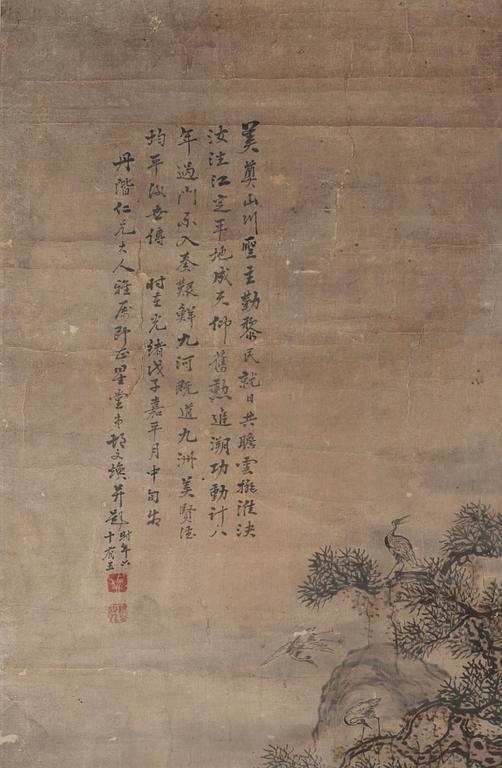 美奠山川聖主勤黎民就日共瞻雲排淮決
汝注江定平地成天仰舊勲追溯功勤計八
年過門不入奏艱鮮九河既道九洲美賢
均平後世傳 时在光緒戊子嘉平月中旬
丹階仁兄大人雅屬即正星堂弟文煥并題時年六
十有五